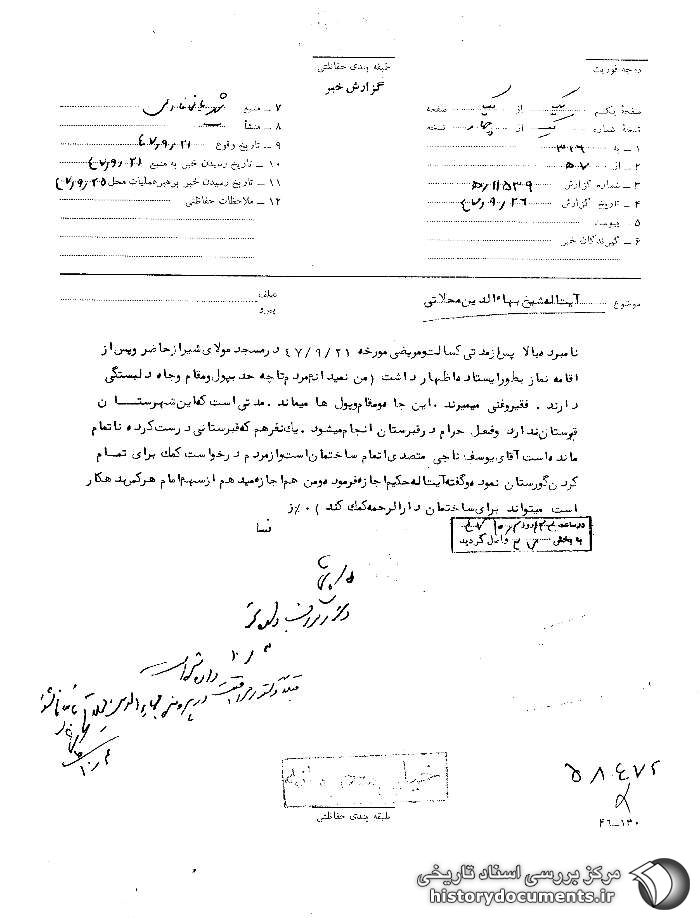 درجه فوریت
طبقه بندی حفاظتی
گزارش خبر
صفحه یکم یک از یک صفحه
نسخه شماره یک از چهار نسخه
۱ ــ به ۳۱۶
۲ ــ از ۵۷
۳ ــ شماره گزارش ۱۱۵۳۹/ﻫ
۴ ــ تاریخ گزارش ۴۷/۹/۲۶
۵ ــ پیوست
۶ ــ گیرندگان خبر
۷ ــ منبع
۸ ــ منشأ
۹ ــ تاریخ وقوع ۴۷/۹/۲۱
۱۰ ــ تاریخ رسیدن خبر به منبع ۴۷/۹/۲۱
۱۱ ــ تاریخ رسیدن خبر برهبر عملیات محل ۴۷/۹/۲۵
۱۲ ــ ملاحظات حفاظتی
موضوع آیت اله شیخ بهاءالدین محلاتی
عطف
پیرو
نامبرده بالا پس از مدتی کسالت و مریضی مورخه ۴۷/۹/۲۱ در مسجد مولای شیراز حاضر و پس از
اقامه نماز بطور ایستاده اظهار داشت (من نمیدانم مردم تا چه حد بپول و مقام و جاه دلبستگی
دارند . فقیر و غنی میمیرند . این جا ه و مقام و پول ها میماند . مدتی است که این شهرستـــان
قبرستان ندارد و فعل حرام در قبرستان انجام میشود . یک نفر هم که قبرستانی درست کرده ناتمام
مانده است آقای یوسف ناجی متصدی اتمام ساختمان است و از مردم درخواست کمک برای تمام
کردن گورستان نموده و گفته آیت اله حکیم اجازه فرموده و من هم اجازه میدهم از سهم امام هرکس بدهکار
است میتواند برای ساختمان دارالرحمه کمک کند ) ۰٪ز
نسا
در ساعت روز
به بخش واصل گردید
۱۰/۳
۱۰/۴
خیلی محرمانه
طبقه بندی حفاظتی
۵۸۴۷۲
۴۶ــ۱۳۰
مرکز بررسی اسناد تاریخی
historydocuments.ir